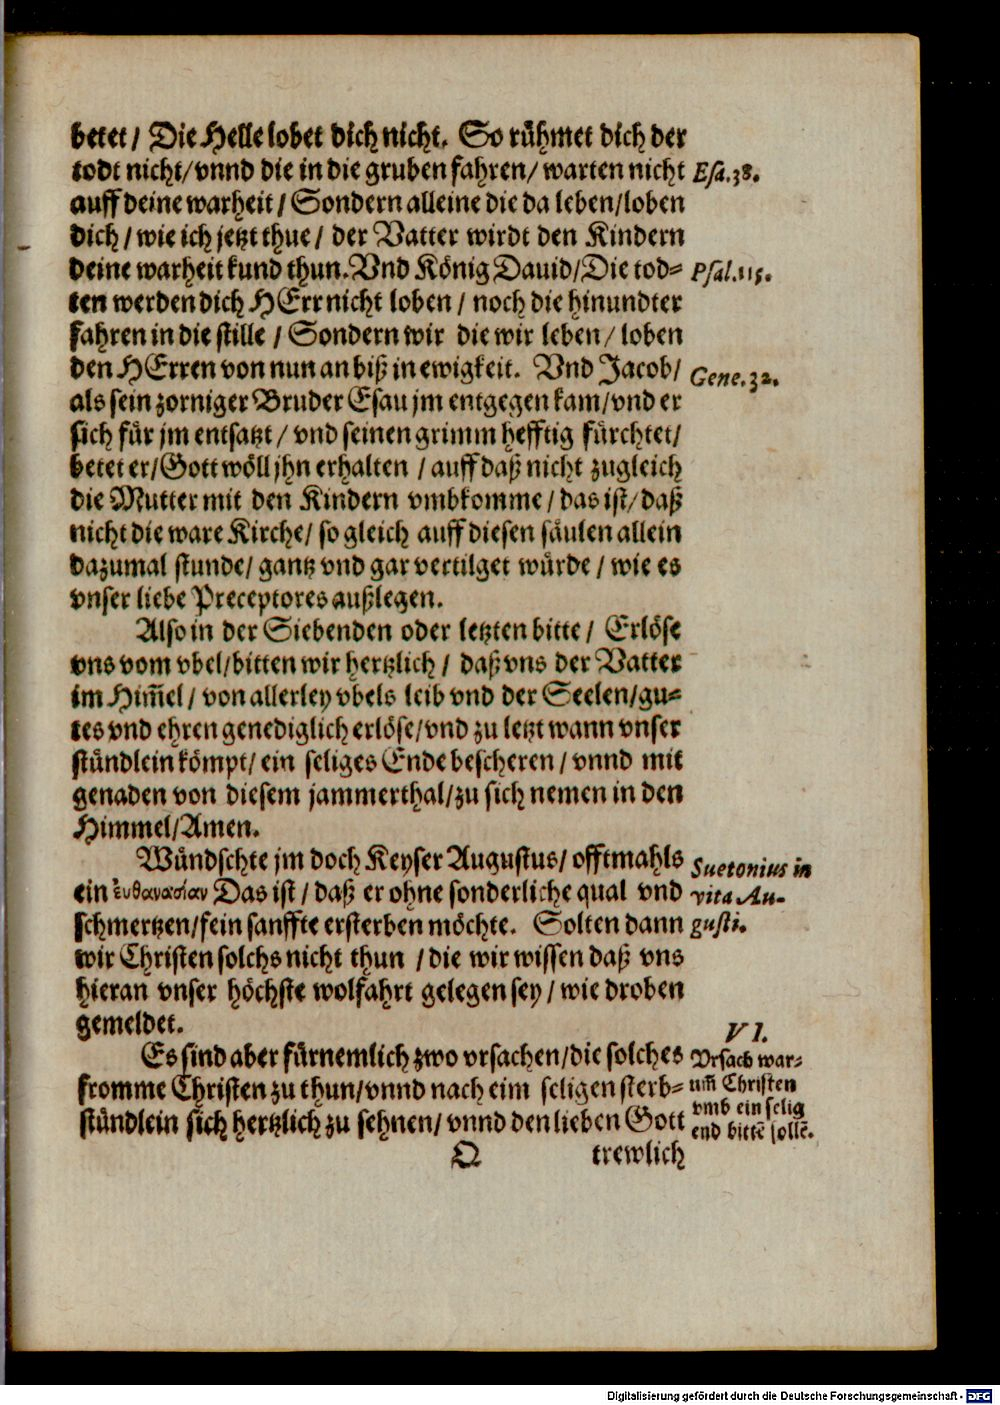 betet / Die Helle lobet dich nicht. So rühmet dich der
todt nicht / vnnd die in die gruben fahren / warten nicht
Esa.38.
auff deine warheit / Sondern alleine die da leben / loben
dich / wie ich jetzt thue / der Vatter wirdt den Kindern
deine warheit kund thun. Vnd König Dauid / Die tod-
Psal.115.
ten werden dich HErr nicht loben / noch die hinundter
fahren in die stille / Sondern wir die wir leben / loben
den HErren von nun an biß in ewigkeit. Vnd Jacob /
Gene.32.
als sein zorniger Bruder Esau jm entgegen kam / vnd er
sich für jm entsatzt / vnd seinen grimm hefftig fürchtet /
betet er / Gott wöll jhn erhalten / auff daß nicht zugleich
die Mutter mit den Kindern vmbkomme / das ist / daß
nicht die ware Kirche / so gleich auff diesen säulen allein
dazumal stunde / gantz vnd gar vertilget würde / wie es
vnser liebe Preceptores außlegen.
Also in der Siebenden oder letzten bitte / Erlöse
vns vom vbel / bitten wir hertzlich / daß vns der Vatter
im Him̃el / von allerley vbels leib vnd der Seelen / gu-
tes vnd ehren genediglich erlöse / vnd zu letzt wann vnser
stündlein kömpt / ein seliges Ende bescheren / vnnd mit
genaden von diesem jammerthal / zu sich nemen in den
Himmel / Amen.
Wündschte jm doch Keyser Augustus / offtmahls
Suetonius in
ein ἐυθανασίαν Das ist / daß er ohne sonderliche qual vnd
vita Au-
schmertzen / fein sanffte ersterben möchte. Solten dann
gusti.
wir Christen solchs nicht thun / die wir wissen daß vns
hieran vnser höchste wolfahrt gelegen sey / wie droben
gemeldet.
VI.
Es sind aber fürnemlich zwo vrsachen / die solches
Vrsach war-
fromme Christen zu thun / vnnd nach eim seligen sterb-
um̃ Christen
vmb ein selig
stündlein sich hertzlich zu sehnen / vnnd den lieben Gott
end bittẽ sollẽ.
Q
trewlich
Digitalisierung gefördert durch die Deutsche Forschungsgemeinschaft - DFG